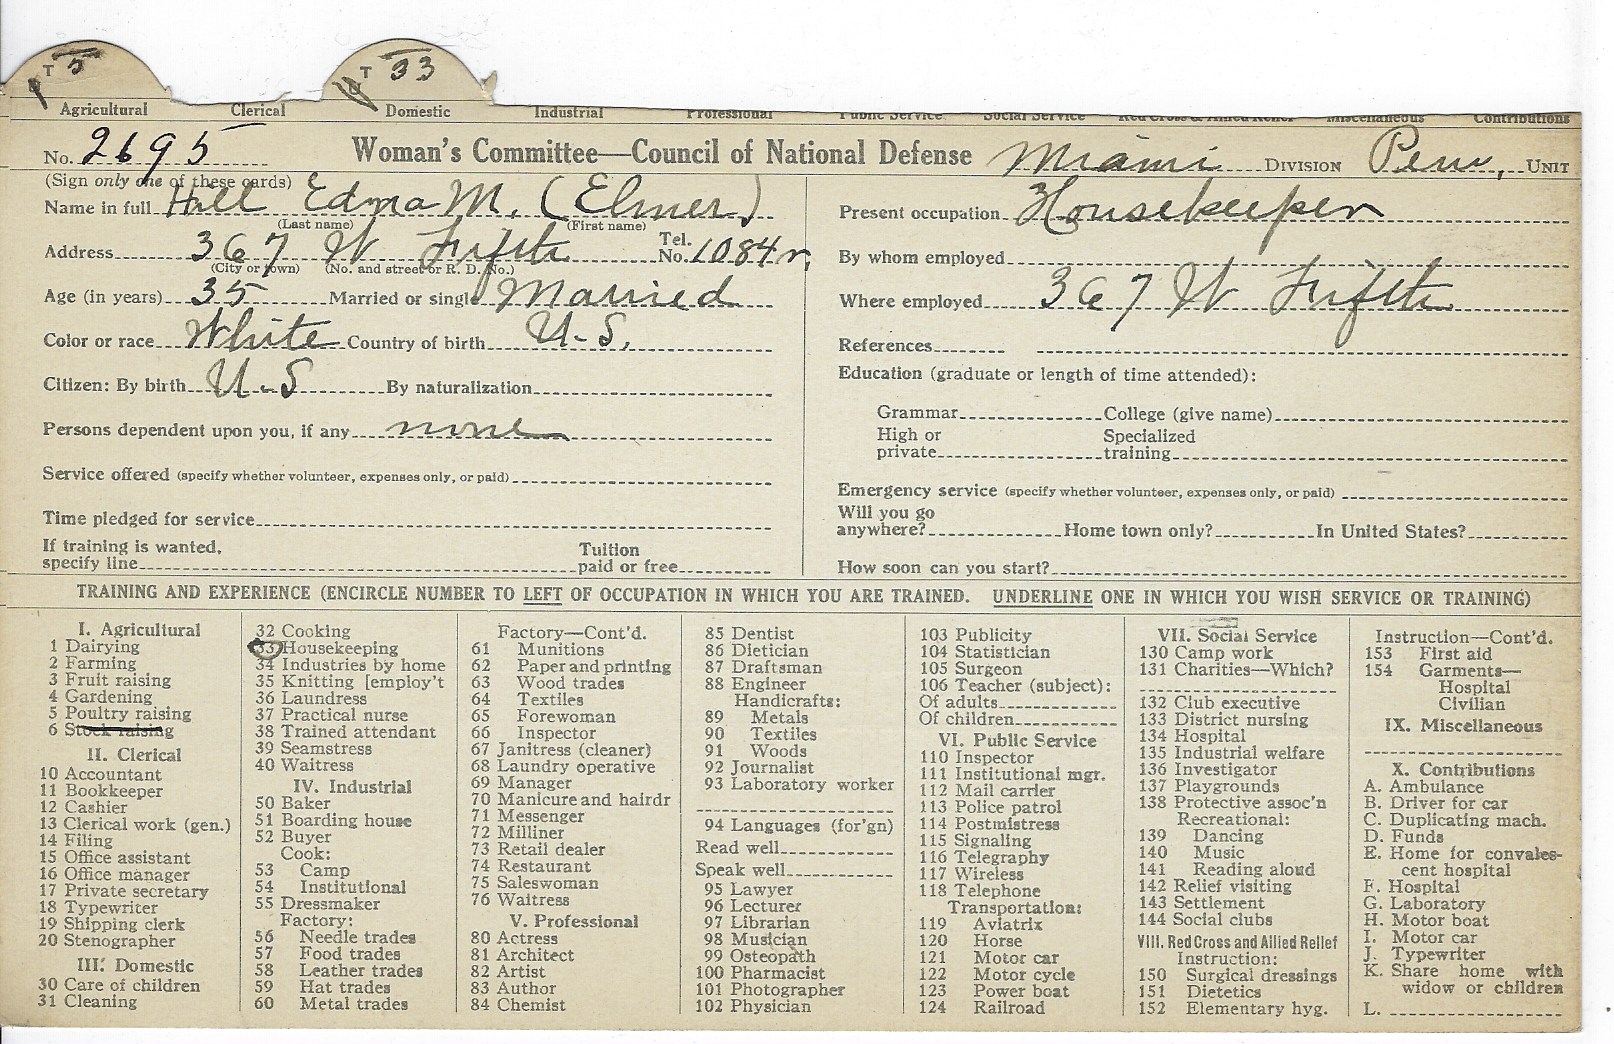 T 5 T 33
Agricultural Clerical Domestic Industrial Professional Public Service Social Service Red Cross & Allied Relief Miscellaneous Contributions
No. 2695 Woman's Committee—Council of National Defense Miami DIVISION Peru, UNIT
(Sign only one of these cards)
Name in full Hill Edna M. (Elmer)
(Last name) (First name)
Address 367 W Fifth Tel. No. 1084 r,
(City or town) (No. and street or R. D. No.)
Age (in years) 35 Married or single Married
Color or race White Country of birth U-S.
Citizen: By birth U-S By naturalization
Persons dependent upon you, if any none
Service offered (specify whether volunteer, expenses only, or paid)
Time pledged for service
If training is wanted, specify line Tuition paid or free
Present occupation Housekeeper
By whom employed
Where employed 367 W Fifth
References
Education (graduate or length of time attended):
Grammar College (give name)
High or private Specialized training
Emergency service (specify whether volunteer, expenses only, or paid)
Will you go anywhere? Home town only? In United States?
How soon can you start?
TRAINING AND EXPERIENCE (ENCIRCLE NUMBER TO LEFT OF OCCUPATION IN WHICH YOU ARE TRAINED. UNDERLINE ONE IN WHICH YOU WISH SERVICE OR TRAINING)
I. Agricultural
1 Dairying
2 Farming
3 Fruit raising
4 Gardening
5 Poultry raising
6 Stock raising
II. Clerical
10 Accountant
11 Bookkeeper
12 Cashier
13 Clerical work (gen.)
14 Filing
15 Office assistant
16 Office manager
17 Private secretary
18 Typewriter
19 Shipping clerk
20 Stenographer
III. Domestic
30 Care of children
31 Cleaning
32 Cooking
33 Housekeeping
34 Industries by home
35 Knitting [employ't
36 Laundress
37 Practical nurse
38 Trained attendant
39 Seamstress
40 Waitress
IV. Industrial
50 Baker
51 Boarding house
52 Buyer
Cook:
53 Camp
54 Institutional
55 Dressmaker
Factory:
56 Needle trades
57 Food trades
58 Leather trades
59 Hat trades
60 Metal trades
Factory—Cont'd.
61 Munitions
62 Paper and printing
63 Wood trades
64 Textiles
65 Forewoman
66 Inspector
67 Janitress (cleaner)
68 Laundry operative
69 Manager
70 Manicure and hairdr
71 Messenger
72 Milliner
73 Retail dealer
74 Restaurant
75 Saleswoman
76 Waitress
V. Professional
80 Actress
81 Architect
82 Artist
83 Author
84 Chemist
85 Dentist
86 Dietician
87 Draftsman
88 Engineer
Handicrafts:
89 Metals
90 Textiles
91 Woods
92 Journalist
93 Laboratory worker
94 Languages (for'gn)
Read well
Speak well
95 Lawyer
96 Lecturer
97 Librarian
98 Musician
99 Osteopath
100 Pharmacist
101 Photographer
102 Physician
103 Publicity
104 Statistician
105 Surgeon
106 Teacher (subject):
Of adults
Of children
VI. Public Service
110 Inspector
111 Institutional mgr.
112 Mail carrier
113 Police patrol
114 Postmistress
115 Signaling
116 Telegraphy
117 Wireless
118 Telephone
Transportation:
119 Aviatrix
120 Horse
121 Motor car
122 Motor cycle
123 Power boat
124 Railroad
VII. Social Service
130 Camp work
131 Charities—Which?
132 Club executive
133 District nursing
134 Hospital
135 Industrial welfare
136 Investigator
137 Playgrounds
138 Protective assoc'n
Recreational:
139 Dancing
140 Music
141 Reading aloud
142 Relief visiting
143 Settlement
144 Social clubs
VIII. Red Cross and Allied Relief
Instruction:
150 Surgical dressings
151 Dietetics
152 Elementary hyg.
Instruction—Cont'd.
153 First aid
154 Garments—
Hospital
Civilian
IX. Miscellaneous
X. Contributions
A. Ambulance
B. Driver for car
C. Duplicating mach.
D. Funds
E. Home for convales-
cent hospital
F. Hospital
G. Laboratory
H. Motor boat
I. Motor car
J. Typewriter
K. Share home with
widow or children
L.